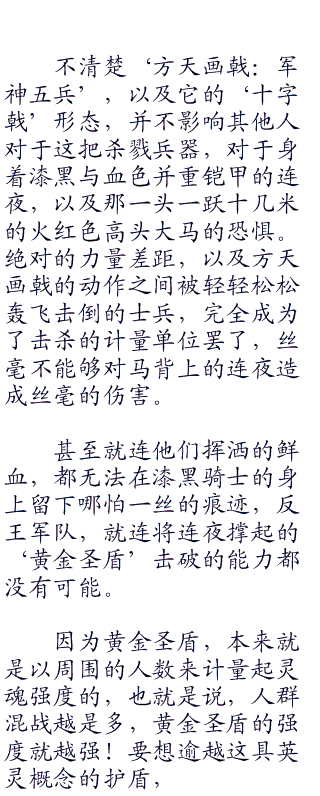 不清楚‘方天画戟：军
神五兵’，以及它的‘十字
戟’形态，并不影响其他人
对于这把杀戮兵器，对于身
着漆黑与血色并重铠甲的连
夜，以及那一头一跃十几米
的火红色高头大马的恐惧。
绝对的力量差距，以及方天
画戟的动作之间被轻轻松松
轰飞击倒的士兵，完全成为
了击杀的计量单位罢了，丝
毫不能够对马背上的连夜造
成丝毫的伤害。
甚至就连他们挥洒的鲜
血，都无法在漆黑骑士的身
上留下哪怕一丝的痕迹，反
王军队，就连将连夜撑起的
‘黄金圣盾’击破的能力都
没有可能。
因为黄金圣盾，本来就
是以周围的人数来计量起灵
魂强度的，也就是说，人群
混战越是多，黄金圣盾的强
度就越强！要想逾越这具英
灵概念的护盾，